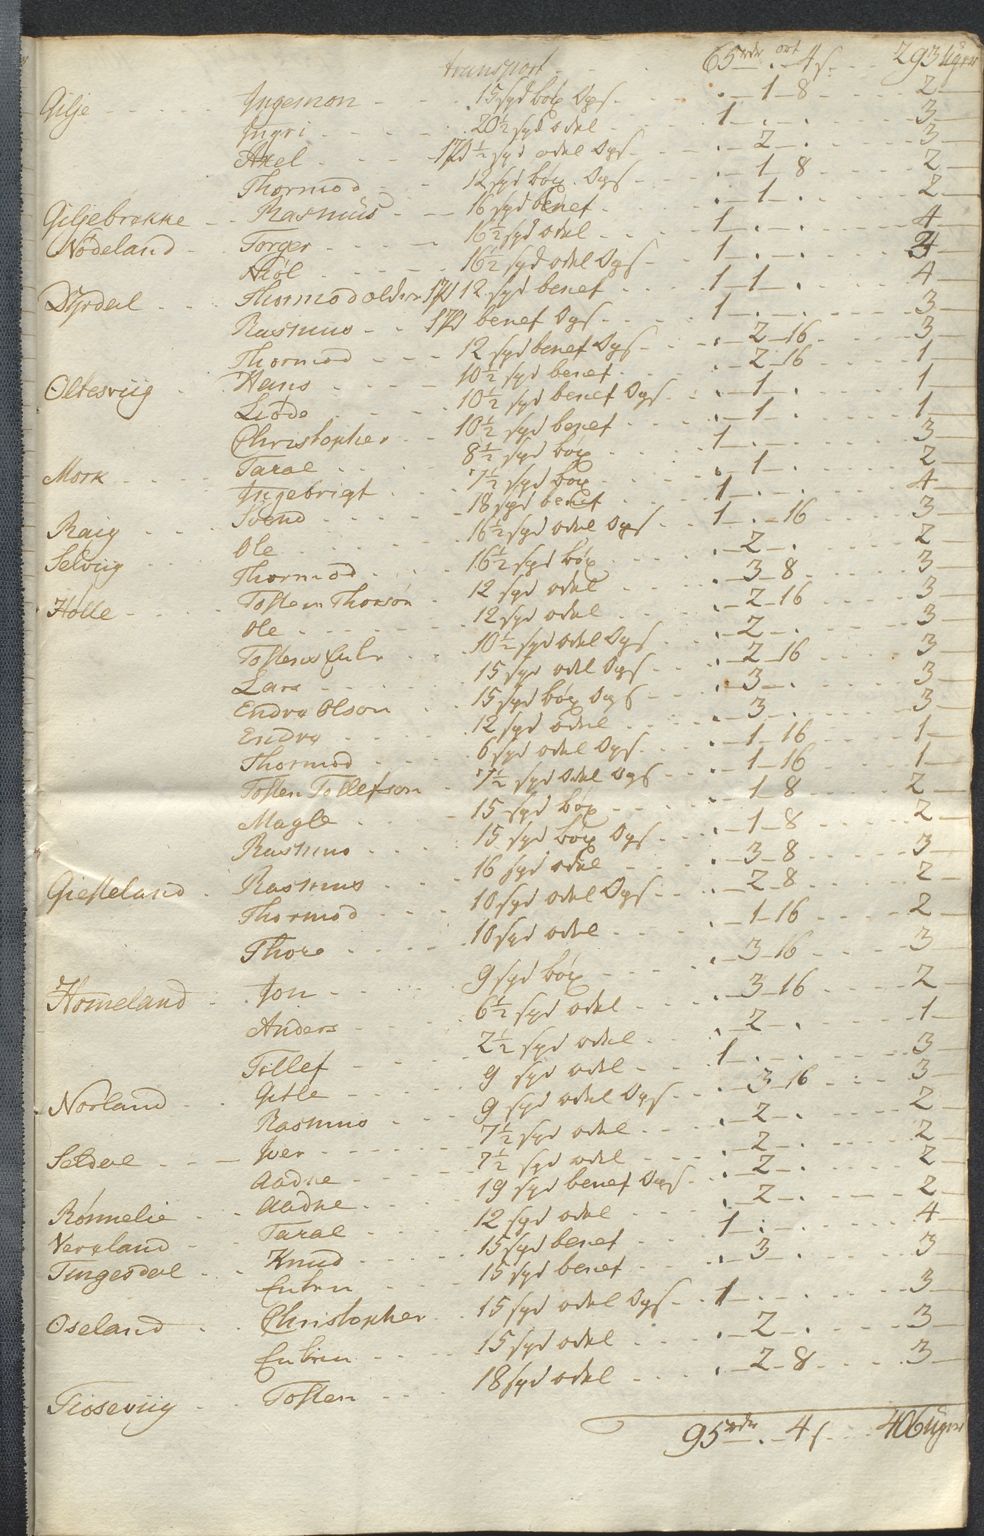 transport - - - 65 rdr . ort 4 s. - - 293 Uger
Gilje - - Ingemon - - - 15 spd bøx Dgs - - . - 1 - 8 - - 2
Ingri - - - 20½ spd odel - - - 1 - . - . - - 3
Axel - - - 17½ spd odel Dgs - - . - 2 - . - - 3
Thormod - - 12 spd bøx Dgs - - . - 1 - 8 - - 2
Giljebrekke - - Rasmus - - 16 spd benef - - . - 1 - . - - 2
Nødeland - Torger - - - 16½ spd odel - - 1 - . - . - - 4
Kiøl - - - 16½ spd odel Dgs - - 1 - . - . - - 4
Dyrdal - Thormod older 12 spd benef - - 1 - 1 - . - - 4
Rasmus - - benef Dgs - - 1 - . - . - - 3
Thormod - - - 12 spd benef Dgs - . - 2 - 16 - - 3
Oltesviig - Hans - - - 10½ spd benef - - . - 2 - 16 - - 1
Liøde - - - 10½ spd benef Dgs - . - 1 - . - - 1
Christopher - - 10½ spd benef - - . - 1 - . - - 1
Mork - - Taral - - - 8½ spd bøx - - 1 - . - . - - 3
Ingebrigt - - 7½ spd bøx - - . - 1 - . - - 2
Raig - - Svend - - - 18 spd benef - - 1 - . - . - - 4
Selviig - - Ole - - - 16½ spd odel Dgs - 1 - . - 16 - - 3
Thormod - - - 16½ spd bøx - - . - 2 - . - - 2
Holle - - Tosten Thorsøn - 12 spd odel - - . - 3 - 8 - - 3
Ole - - - 12 spd odel - - . - 2 - 16 - - 3
Tosten - - 10½ spd odel Dgs - . - 2 - . - - 3
Lars - - - 15 spd odel Dgs - . - 2 - 16 - - 3
Endre Olson - - 15 spd bøx Dgs - . - 3 - . - - 3
Endre - - - 12 spd odel - - . - 3 - . - - 3
Thormod - - 6 spd odel Dgs - . - 1 - 16 - - 1
Tosten Tollefson - 7½ spd odel Dgs - . - 1 - 16 - - 1
Magle - - - 15 spd bøx - - . - 1 - 8 - - 2
Rasmus - - - 15 spd bøx Dgs - . - 1 - 8 - - 2
Giesteland - Rasmus - - - 16 spd odel - - . - 3 - 8 - - 3
Thormod - - - 10 spd odel Dgs - . - 2 - 8 - - 2
Thore - - - 10 spd odel - - . - 1 - 16 - - 2
Homeland - Jon - - - 9 spd bøx - - . - 3 - 16 - - 3
Anders - - - 6½ spd odel - . - 3 - 16 - - 2
Tillef - - - 2½ spd odel - . - 2 - . - - 1
Norland - Gitle - - - 9 spd odel - - 1 - . - . - - 3
Rasmus - - - 9 spd odel Dgs - . - 3 - 16 - - 3
Seldal - - Iver - - - 7½ spd odel - - . - 2 - . - - 2
Aadne - - - 7½ spd odel - - . - 2 - . - - 2
Rønnelie - - Aadne - - 19 spd benef Dgs - . - 2 - . - - 2
Verxland - Taral - - - 12 spd odel - - . - 2 - . - - 2
Tingesdal - - Knud - - - 15 spd benef - - 1 - . - . - - 4
Enbru - - 15 spd benef - - . - 3 - . - - 3
Oseland - - Christopher - 15 spd odel Dgs - 1 - . - . - - 3
Enbrin - - - 15 spd odel - - . - 2 - . - - 3
Tioseviig - - Tosten - - - 18 spd odel - - . - 2 - 8 - - 3
95 rdr . - 4 s - - 406 Uger